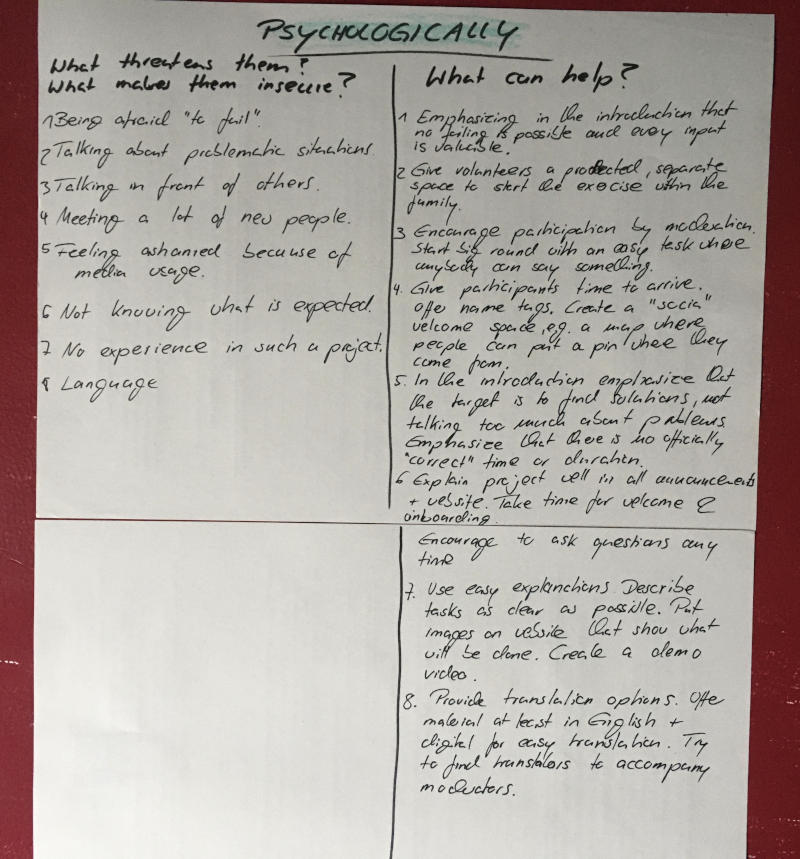 PSYCHOLOGICALLY
What threatens them?
What makes them insecure?
1 Being afraid "to fail".
2 Talking about problematic situations.
3 Talking in front of others.
4 Meeting a lot of new people.
5 Feeling ashamed because of
media usage.
6 Not knowing what is expected.
7 No experience in such a project.
8 Language
What can help?
1 Emphasizing in the introduction that
no failing is possible and every input
is valuable.
2 Give volunteers a protected, separate
space to start the exercise within the
family.
3 Encourage participation by moderation.
Start big round with an easy task where
anybody can say something.
4. Give participants time to arrive.
Offer name tags. Create a "social"
welcome space, e.g. a map where
people can put a pin where they
come from.
5. In the introduction emphasize that
the target is to find solutions, not
talking too much about problems.
Emphasize that there is no officially
"correct" time or duration.
6 Explain project well in all announcements
+ website. Take time for welcome &
onboarding.
Encourage to ask questions any
time
7. Use easy explanations. Describe
tasks as clear as possible. Put
images on website that show what
will be done. Create a demo
video.
8. Provide translation options. Offer
material at least in English +
digital for easy translation. Try
to find translators to accompany
moderators.